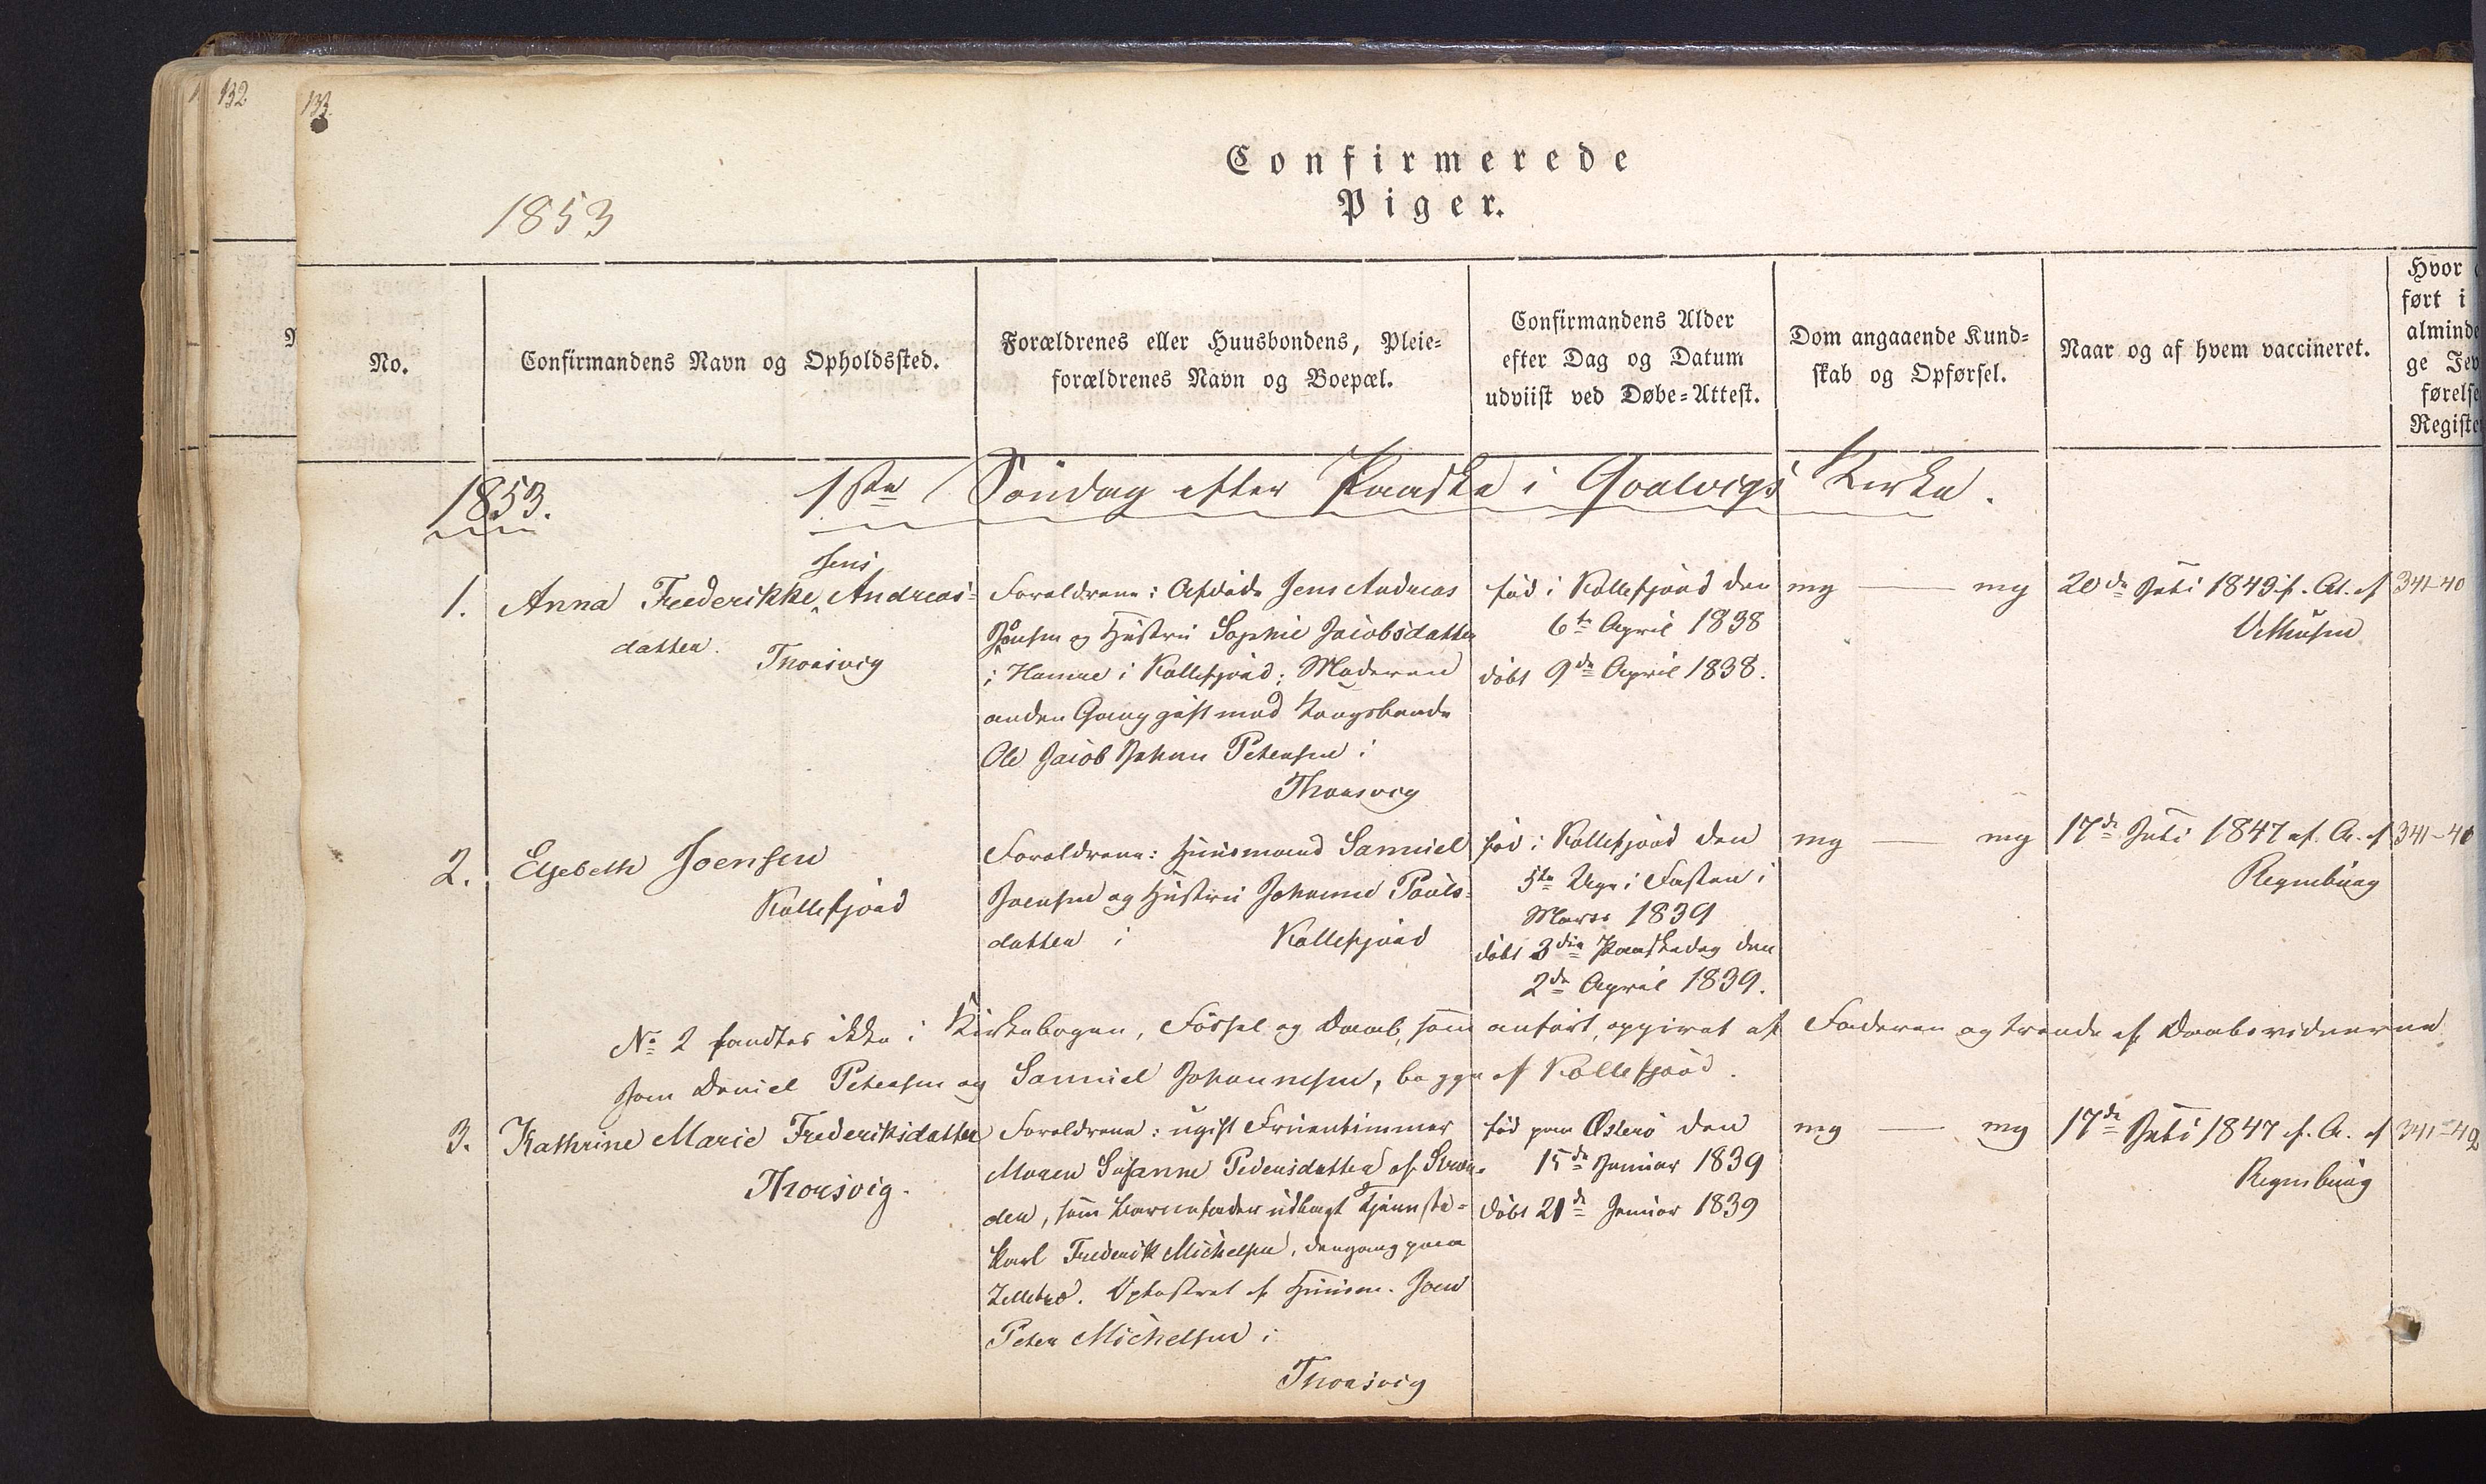 132
133
Confirmerede
Piger.
1853
No.
Confirmandens Navn og Opholdssted.
Forældrenes eller Huusbondens, Pleie-
forældrenes Navn og Boepæl.
Confirmandens Alder
efter Dag og Datum
udviist ved Døbe-Attest.
Dom angaaende Kund-
skab og Opførsel.
Naar og af hvem vaccineret.
Hvor
ført i
alminde
ge Jev
førelse
Registe
1853.
1ste Søndag efter Paaske i Qvalvigs Kirke.
1.
Jens
Anna Frederikke Andreas-
datter.
Thorsvig
Forældrene: Afdøde Jens Andreas
Joensen og Hustru Sophie Jacobsdatter
i Hamre i Kollefjord; Moderen
anden Gang gift med Kongsbonde
Ole Jacob Johan Petersen i
Thorsvig
fød i Kollefjord den
6te April 1838
døbt 9de April 1838.
mg — mg
20de Juli 1849 f. At. af
341-40
2.
Elsebeth Joensen
Kollefjord
Forældrene: Huusmand Samuel
Joensen og Hustru Johanne Pouls-
datter i Kollefjord
fød i Kollefjord den
5te Uge i Fasten i
Marts 1839
døbt 3die Paaskedag den
2de April 1839.
mg — mg
17de Juli 1847 ef. A. af
Regenburg
341-41
No 2 fandtes ikke i Kirkebogen, Fødsel og Daab, som anført, opgivet af Faderen og trende af Daabsvidnerne
Joen Daniel Petersen og Samuel Johannesen, begge af Kollefjord.
3.
Kathrine Marie Frederiksdatter
Thorsvig.
Forældrene: ugift Fruentimmer
Maren Susanne Pedersdatter af Stran-
den, som Barnefader udlagt Tjeneste-
karl Frederik Michelsen, dengang paa
Zelletræ. Opfostret af Huusm. Joen
Peter Michelsen i
Thorsvig
fød paa Østerø den
15de Januar 1839
døbt 21de Januar 1839
mg — mg
17de Juli 1847 f. A. af
Regenburg
341-42